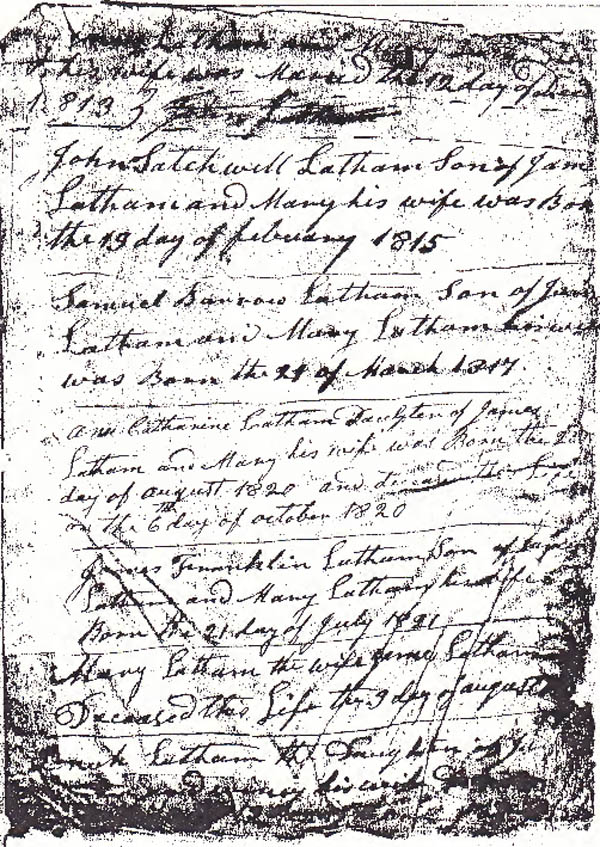 Latham and Mary
his wife was Maried the 12 day of
1813
John Satchwell Latham Son of Jam
Latham and Mary his wife was Bor
the 19 day of february 1815
Samuel Barrow Latham Son of Jam
Latham and Mary Latham his wife
was Born the 21 of March 1817.
Ann Catharine Latham Daughter of James
Latham and Mary his wife was Born the 20
day of august 1820 and deceased this Life
on the 6th day of october 1820
James Franklin Latham Son of Ja
Latham and Mary Latham his wife
Born the 21 day of July 1821
Mary Latham the wife Latham
Deceased this Life the 9 day of august
Latham the Daughter of
his wife